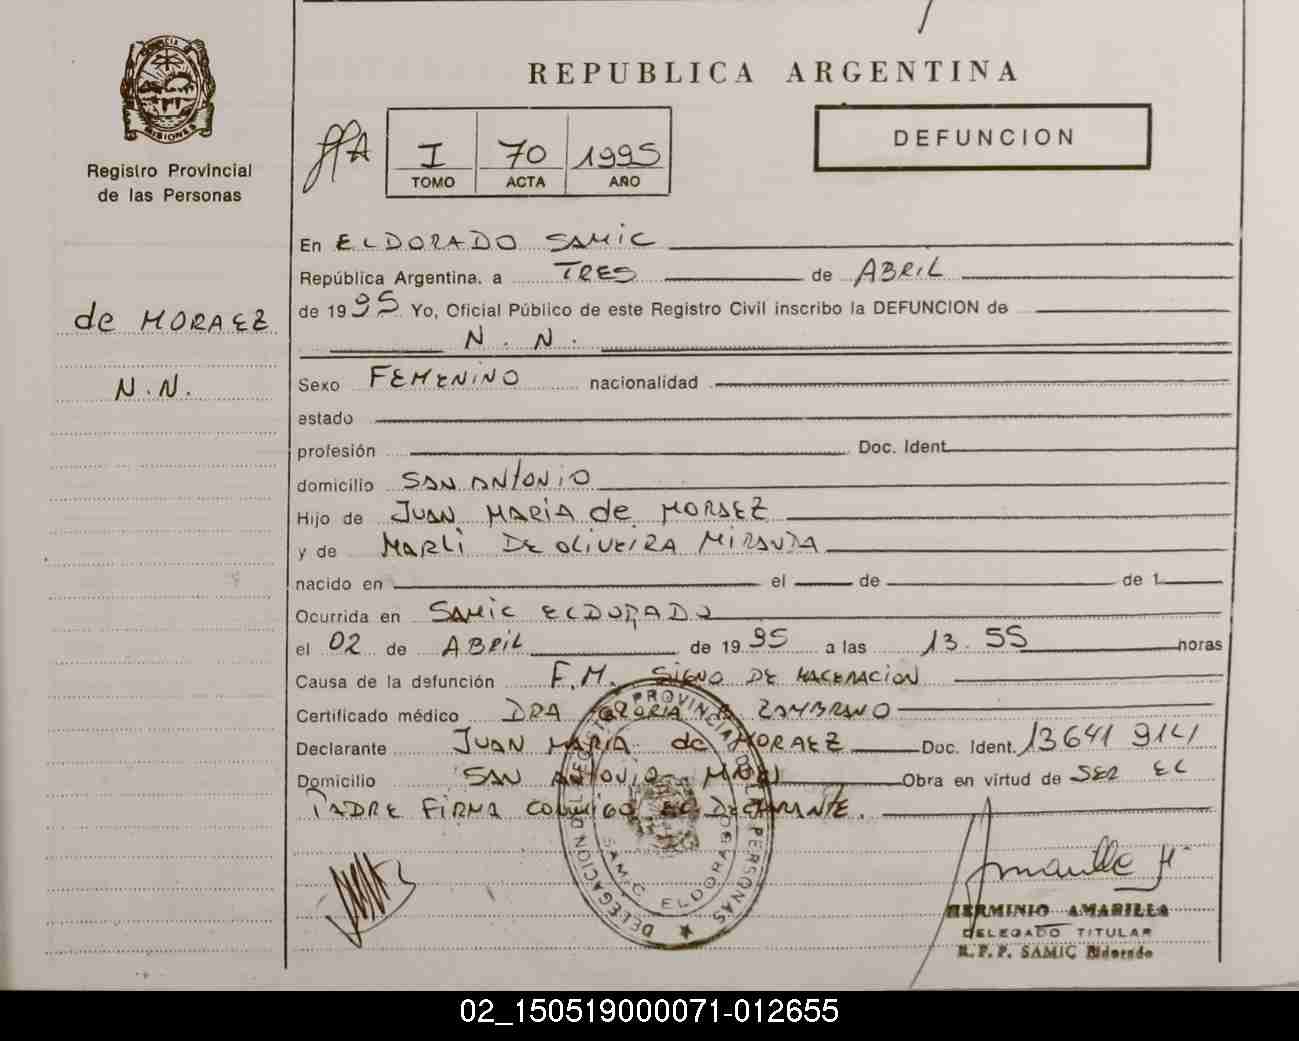 REPUBLICA ARGENTINA
MISIONES
Registro Provincial
de las Personas
I 70 1995
TOMO ACTA AÑO
DEFUNCION
de MORAEZ
N.N.
En ELDORADO SAMIC
República Argentina, a TRES de ABRIL
de 1995 Yo, Oficial Público de este Registro Civil inscribo la DEFUNCION de
N. N.
Sexo FEMENINO nacionalidad
estado
profesión Doc. Ident.
domicilio SAN ANTONIO
Hijo de JUAN MARIA de MORAEZ
y de MARLI DE OLIVEIRA MIRANDA
nacido en el de de 1
Ocurrida en SAMIC ELDORADO
el 02 de ABRIL de 1995 a las 13.55 horas
Causa de la defunción F.M. SIGNO DE MACERACION
Certificado médico DRA ZAMBRANO
Declarante JUAN MARIA de MORAEZ Doc. Ident. 13641
Domicilio SAN ANTONIO Obra en virtud de SER EL
PADRE FIRMA CONMIGO EL DECLARANTE.
DELEGACION DEL REGISTRO PROVINCIAL DE LAS PERSONAS
SAMIC ELDORADO
Amarilla H
HERMINIO AMARILLA
DELEGADO TITULAR
R.P.P. SAMIC Eldorado
02_150519000071-012655